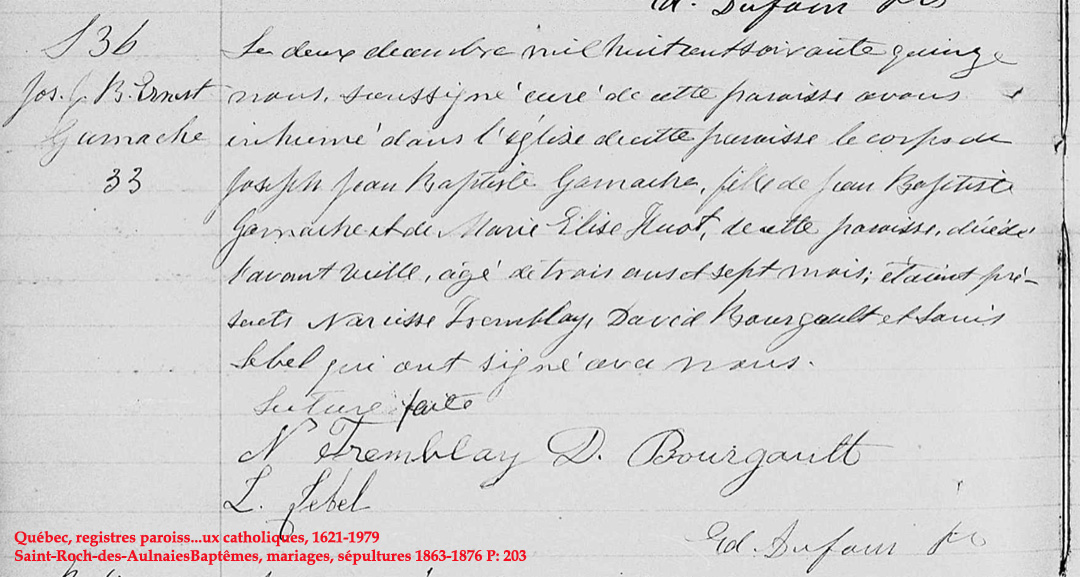 Ed. Dufour Ptr
S36
Jos. J. B. Ernest
Gamache
33
Le deux decembre mil huit cent soixante quinze
nous, soussigné curé de cette paroisse avons
inhumé dans l'église de cette paroisse le corps de
Joseph Jean Baptiste Gamache, fils de Jean Baptiste
Gamache et de Marie Elise Huot, de cette paroisse, décédé
l'avant veille, agé de trois ans et sept mois; étaient pré-
sents Narcisse Tremblay, David Bourgault et Louis
Lebel qui ont signé avec nous.
Lecture faite
N Tremblay D. Bourgault
L. Lebel
Ed. Dufour Ptr
Québec, registres paroiss...ux catholiques, 1621-1979
Saint-Roch-des-AulnaiesBaptêmes, mariages, sépultures 1863-1876 P: 203